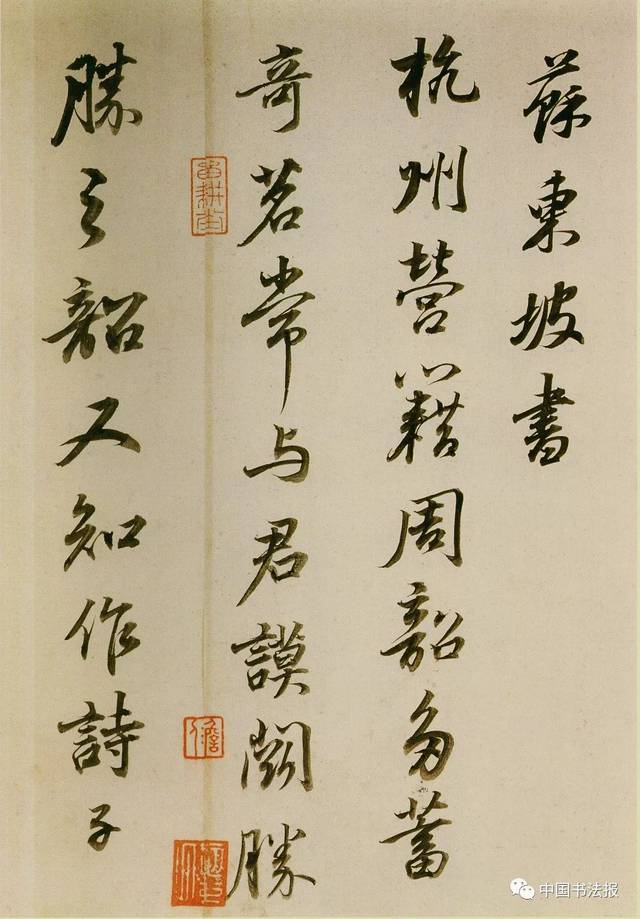 蘇東坡書
杭州營籍周韶多蓄
奇茗常与君謨鬪勝
勝之韶又知作詩子
中国书法报